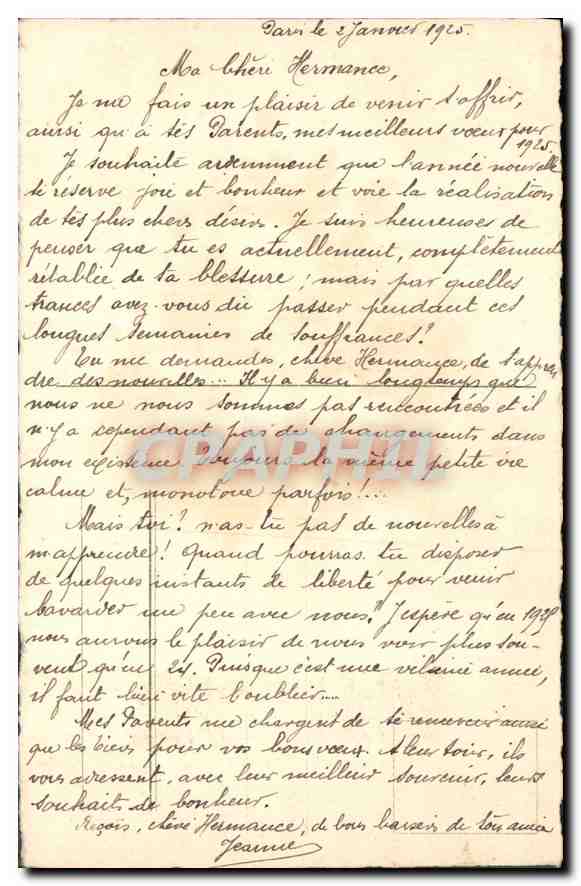 Paris le 2 Janvier 1925.
Ma Chère Hermance,
Je me fais un plaisir de venir t'offrir,
ainsi qu'à tés Parents, mes meilleurs vœux pour
1925.
Je souhaite ardemment que l'année nouvelle
te réserve joie et bonheur et voie la réalisation
de tés plus chers désirs. Je suis heureuses de
penser que tu es actuellement, complètement
rétablie de ta blessure ; mais par quelles
trances avez-vous dû passer pendant ces
longues semaines de souffrances ?
Tu me demandes, chère Hermance, de t'appren
dre des nouvelles... Il y a bien longtemps que
nous ne nous sommes pas rencontrées et il
n'y a cependant pas de changements dans
mon existence toujours la même petite vie
calme et, monotone parfois !...
Mais toi ? n'as-tu pas de nouvelles à
m'apprendre ! Quand pourras-tu disposer
de quelques instants de liberté pour venir
bavarder un peu avec nous ? J'espère qu'en 1925
nous aurons le plaisir de nous voir plus sou-
vent qu'en 24. Puisque c'est une vilaine année,
il faut bien vite l'oublier....
Mes Parents me chargent de te remercier ainsi
que les tiens pour vos bons vœux. A leur tour, ils
vous adressent, avec leur meilleur souvenir, leurs
souhaits de bonheur.
Reçois, chère Hermance, de bons baisers de ton amie
Jeanne
CPAPHIL